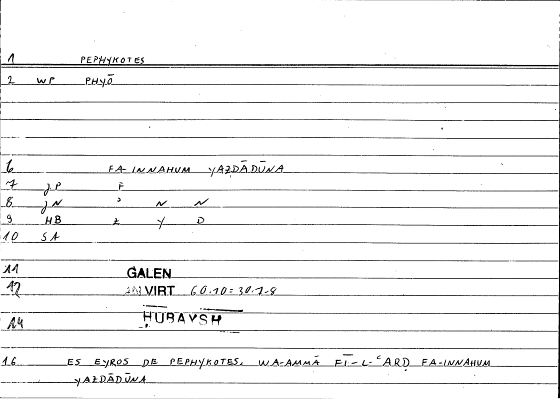 1 PEPHYKOTES
2 WP PHYŌ
6 FA-INNAHUM YAZDĀDŪNA
7 JP F
8 JN ʾ N N
9 HB Z Y D
10 SA
11 GALEN
12 VIRT 60.10=30.7-8
14 ḤUBAYSH
16 ES EYROS DE PEPHYKOTES. WA-AMMĀ FĪ-L-ʿARḌ FA-INNAHUM
YAZDĀDŪNA